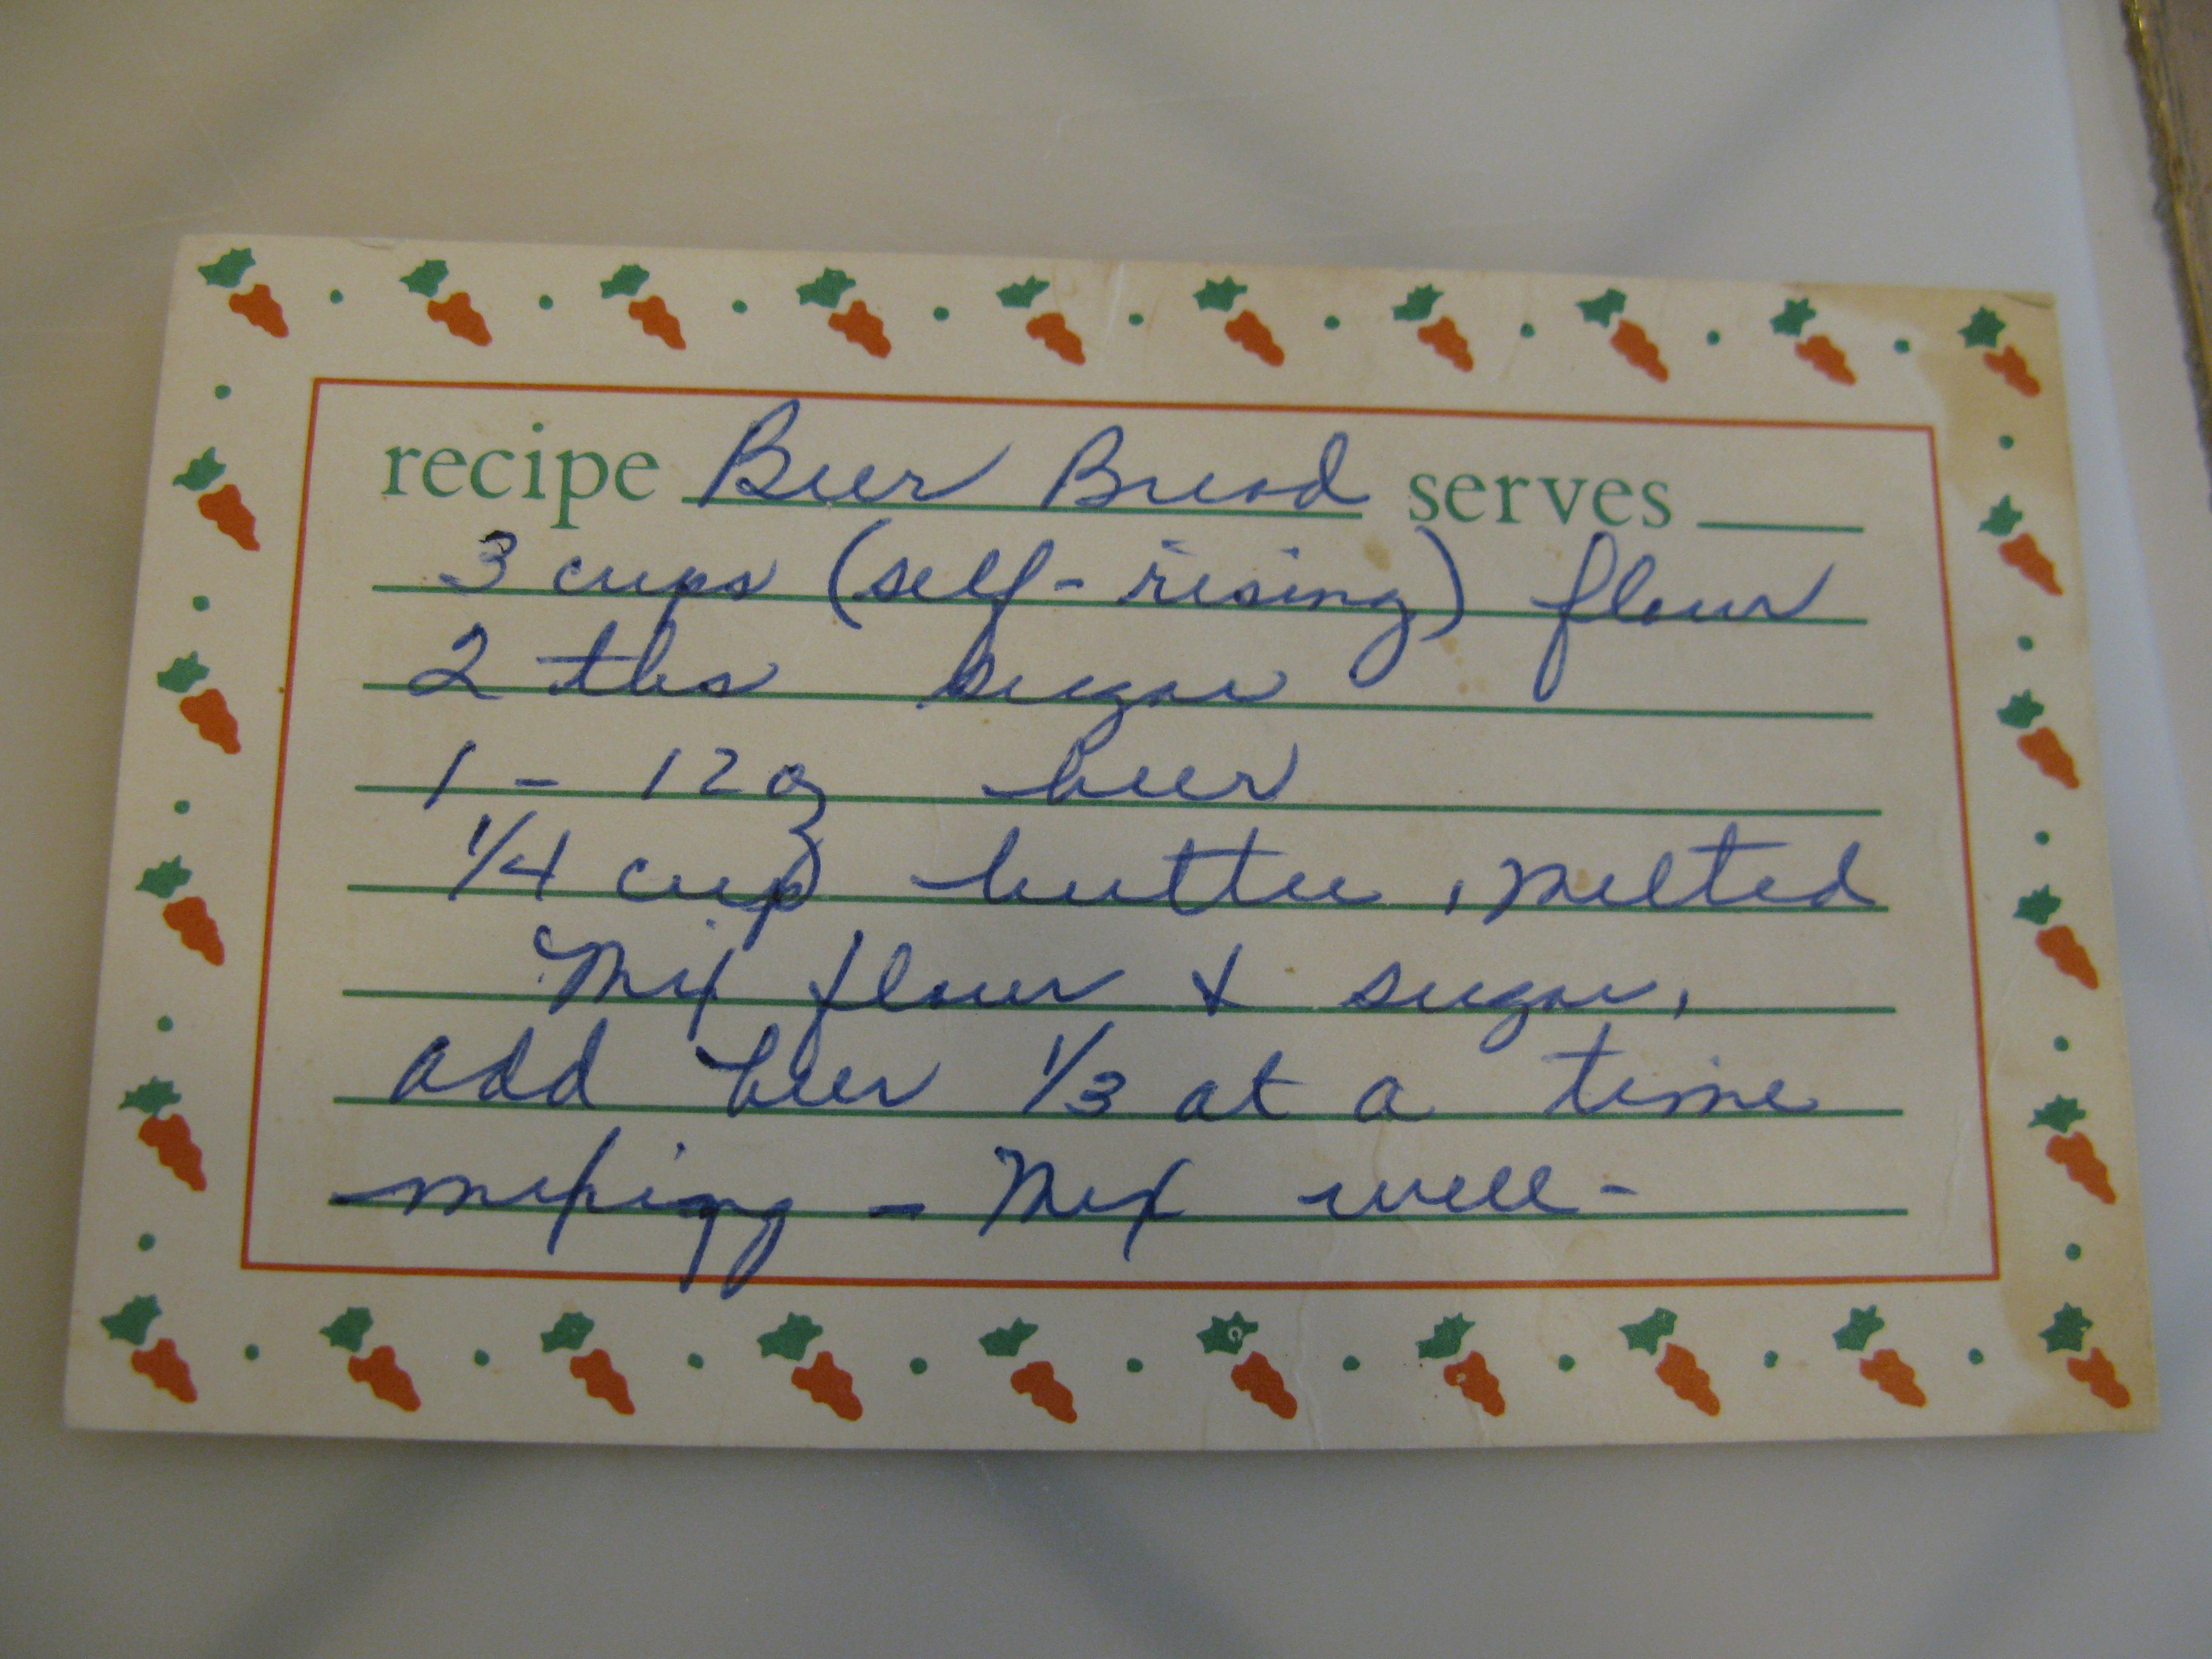 recipe Beer Bread serves
3 cups (self-rising) flour
2 tbs sugar
1 - 12 oz beer
1/4 cup butter, melted
Mix flour & sugar,
add beer 1/3 at a time
mixing - Mix well -